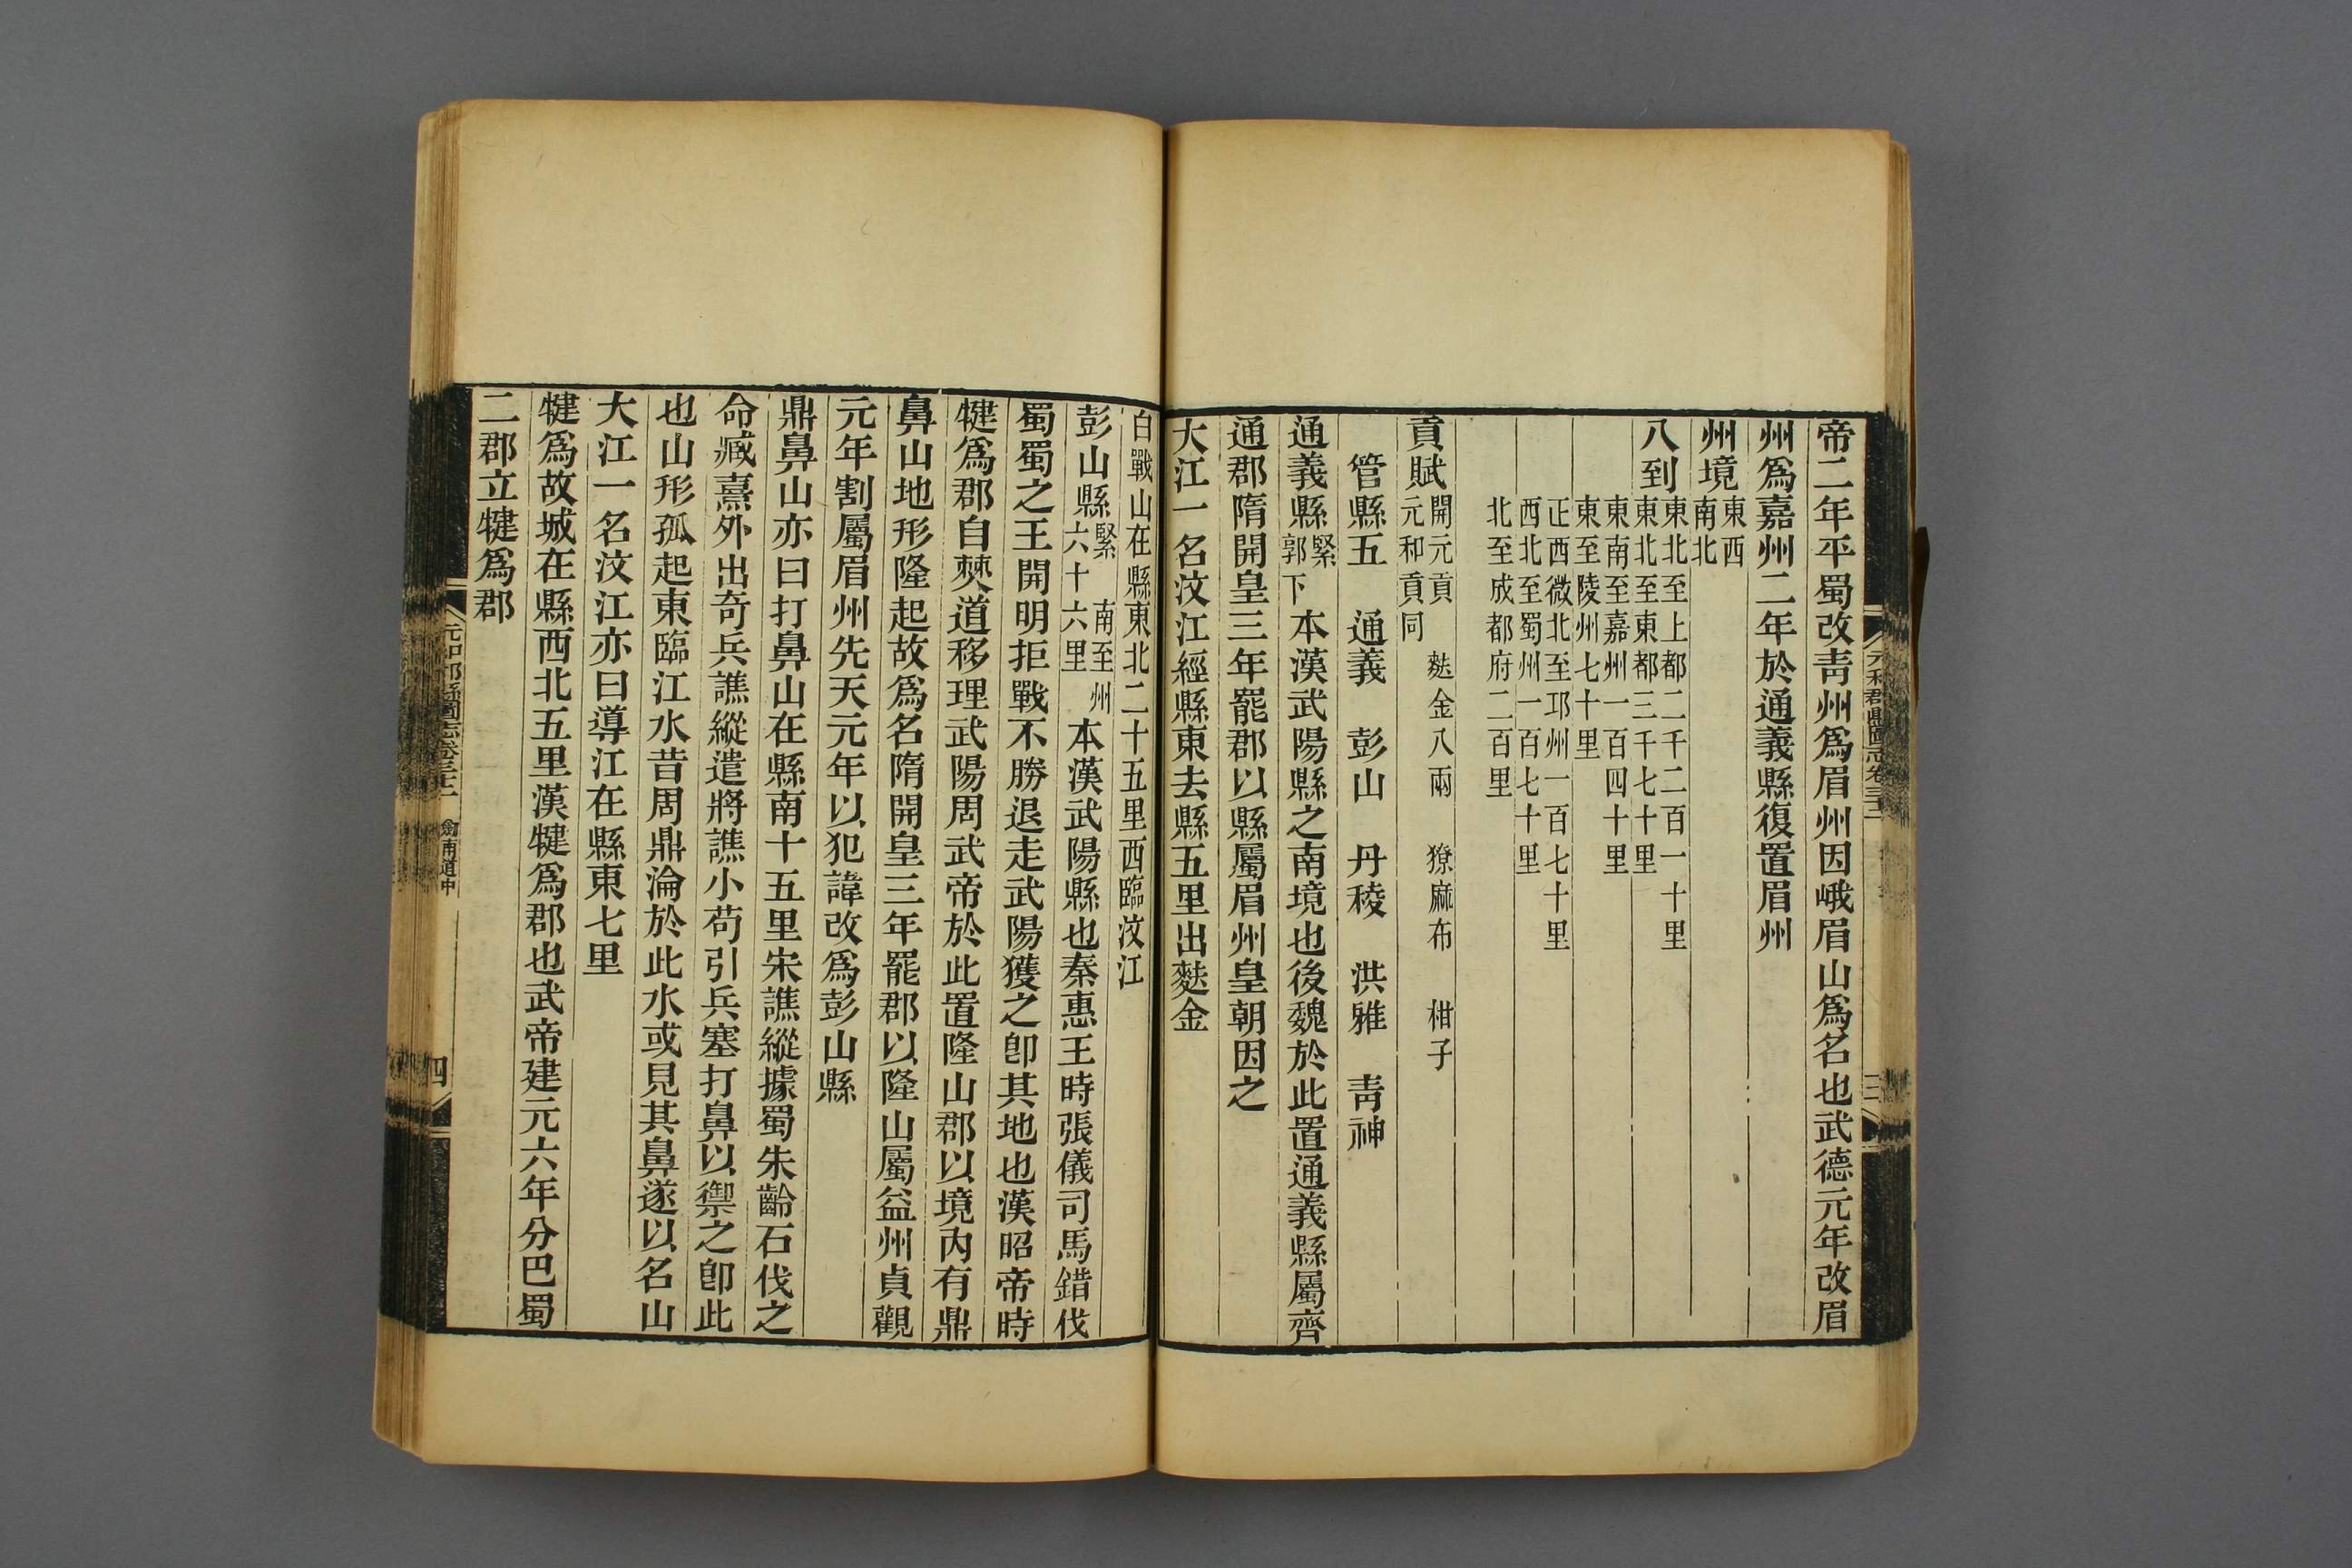 帝二年平蜀改靑州爲眉州因峨眉山爲名也武德元年改眉
州爲嘉州二年於通義縣復置眉州
州境東西
南北
八到東北至上都二千二百一十里
東北至東都三千七十里
東南至嘉州一百四十里
東至陵州七十里
正西微北至邛州一百七十里
西北至蜀州一百七十里
北至成都府二百里
貢賦開元貢 麩金八兩 獠麻布 柑子
元和貢同
管縣五 通義 彭山 丹稜 洪雅 靑神
通義縣緊
郭下
本漢武陽縣之南境也後魏於此置通義縣屬齊
通郡隋開皇三年罷郡以縣屬眉州皇朝因之
大江一名汶江經縣東去縣五里出麩金
白戰山在縣東北二十五里西臨汶江
彭山縣緊 南至州
六十六里
本漢武陽縣也秦惠王時張儀司馬錯伐
蜀蜀之王開明拒戰不勝退走武陽獲之卽其地也漢昭帝時
犍爲郡自僰道移理武陽周武帝於此置隆山郡以境內有鼎
鼻山地形隆起故爲名隋開皇三年罷郡以隆山屬益州貞觀
元年割屬眉州先天元年以犯諱改爲彭山縣
鼎鼻山亦曰打鼻山在縣南十五里宋譙縱據蜀朱齡石伐之
命臧熹外出奇兵譙縱遣將譙小苟引兵塞打鼻以禦之卽此
也山形孤起東臨江水昔周鼎淪於此水或見其鼻遂以名山
大江一名汶江亦曰導江在縣東七里
犍爲故城在縣西北五里漢犍爲郡也武帝建元六年分巴蜀
二郡立犍爲郡
元和郡縣圖志卷三十二 劍南道中
四